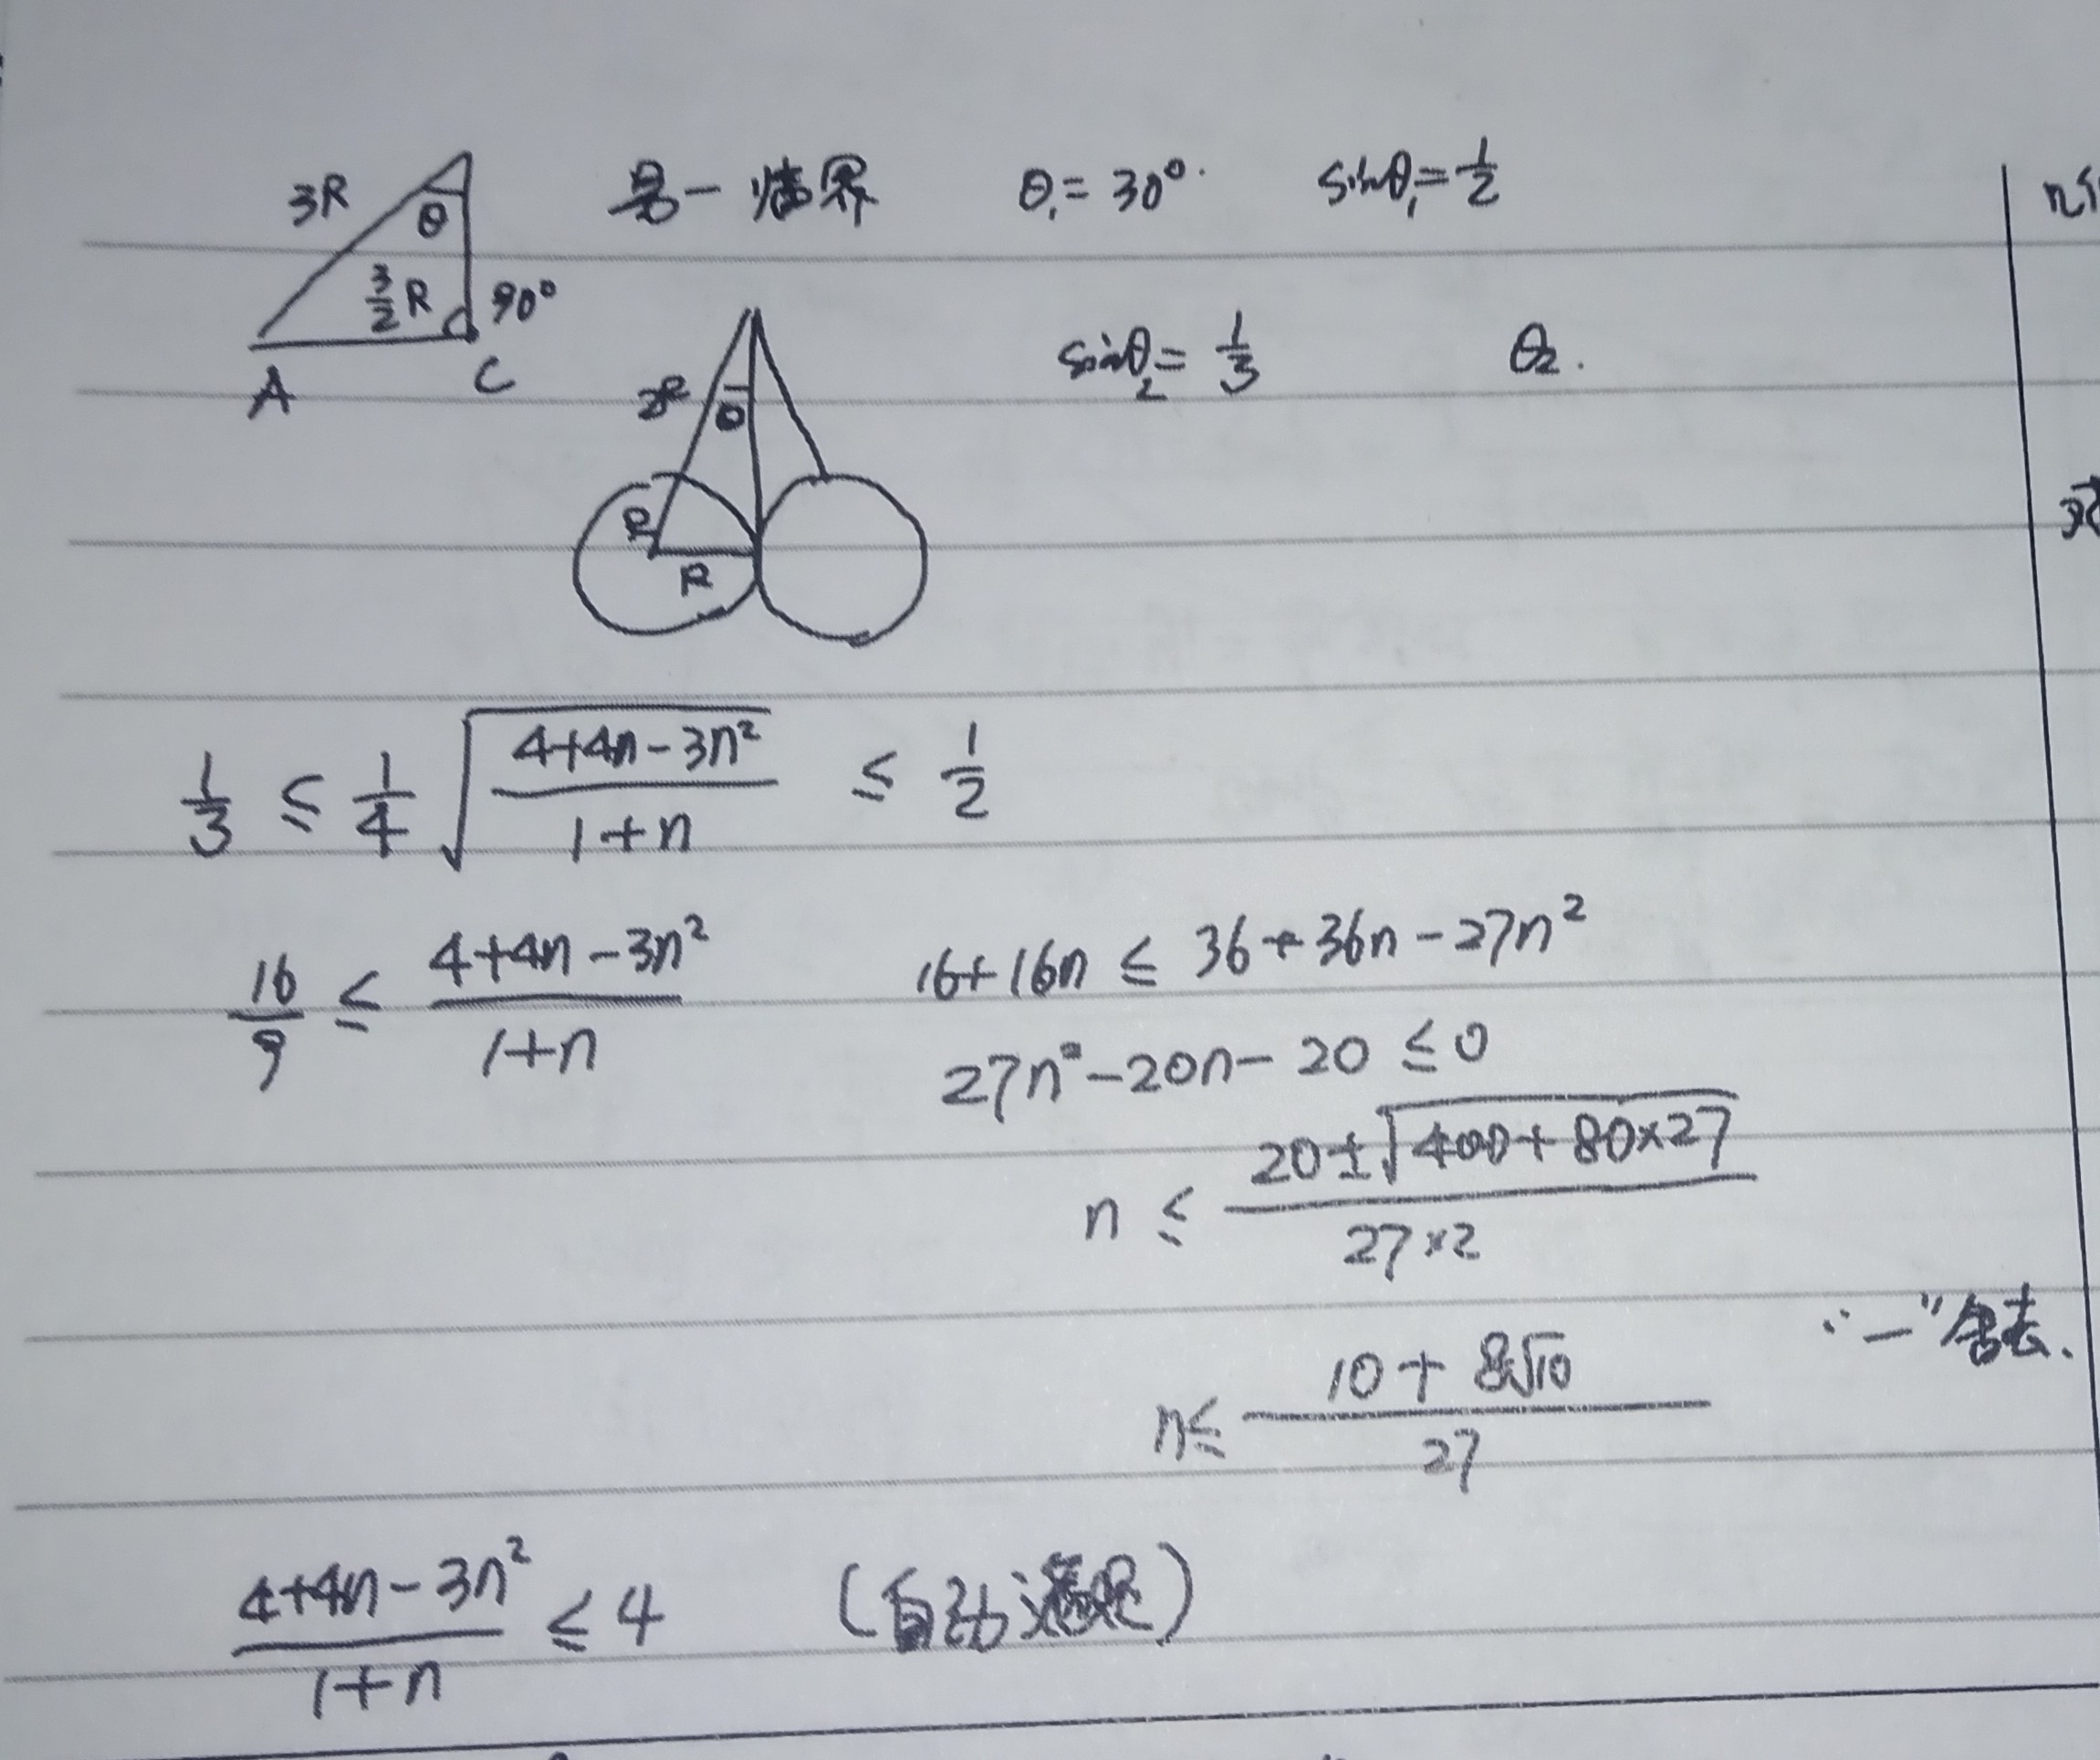 3R θ 3/2 R 90° A C
另一临界 θ₁ = 30°. sinθ₁ = 1/2
2R θ R R
sinθ₂ = 1/3 θ₂.
1/3 ≤ 1/4 √((4+4n-3n²)/(1+n)) ≤ 1/2
16/9 ≤ (4+4n-3n²)/(1+n) 16+16n ≤ 36+36n-27n²
27n²-20n-20 ≤ 0
n ≤ (20±√(400+80×27))/(27×2)
n ≤ (10+8√10)/27 "-"舍去.
(4+4n-3n²)/(1+n) ≤ 4 (自动满足)